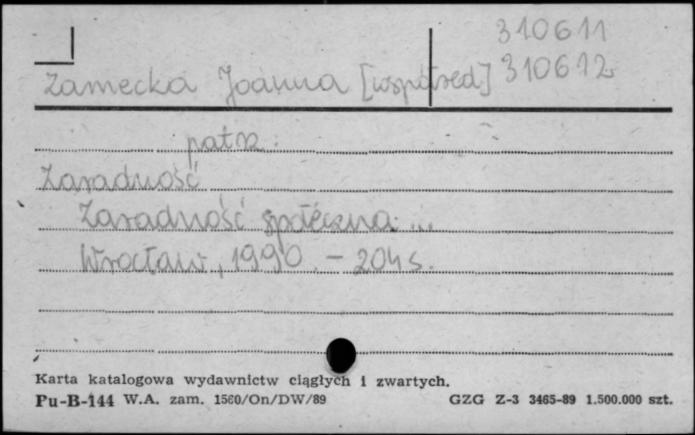 310611
Zamecka Joanna [współred] 310612
patrz:
Zaradność
Zaradność społeczna ...
Wrocław, 1990. - 204 s.
Karta katalogowa wydawnictw ciągłych i zwartych.
Pu-B-144 W.A. zam. 1560/On/DW/89 GZG Z-3 3465-89 1.500.000 szt.